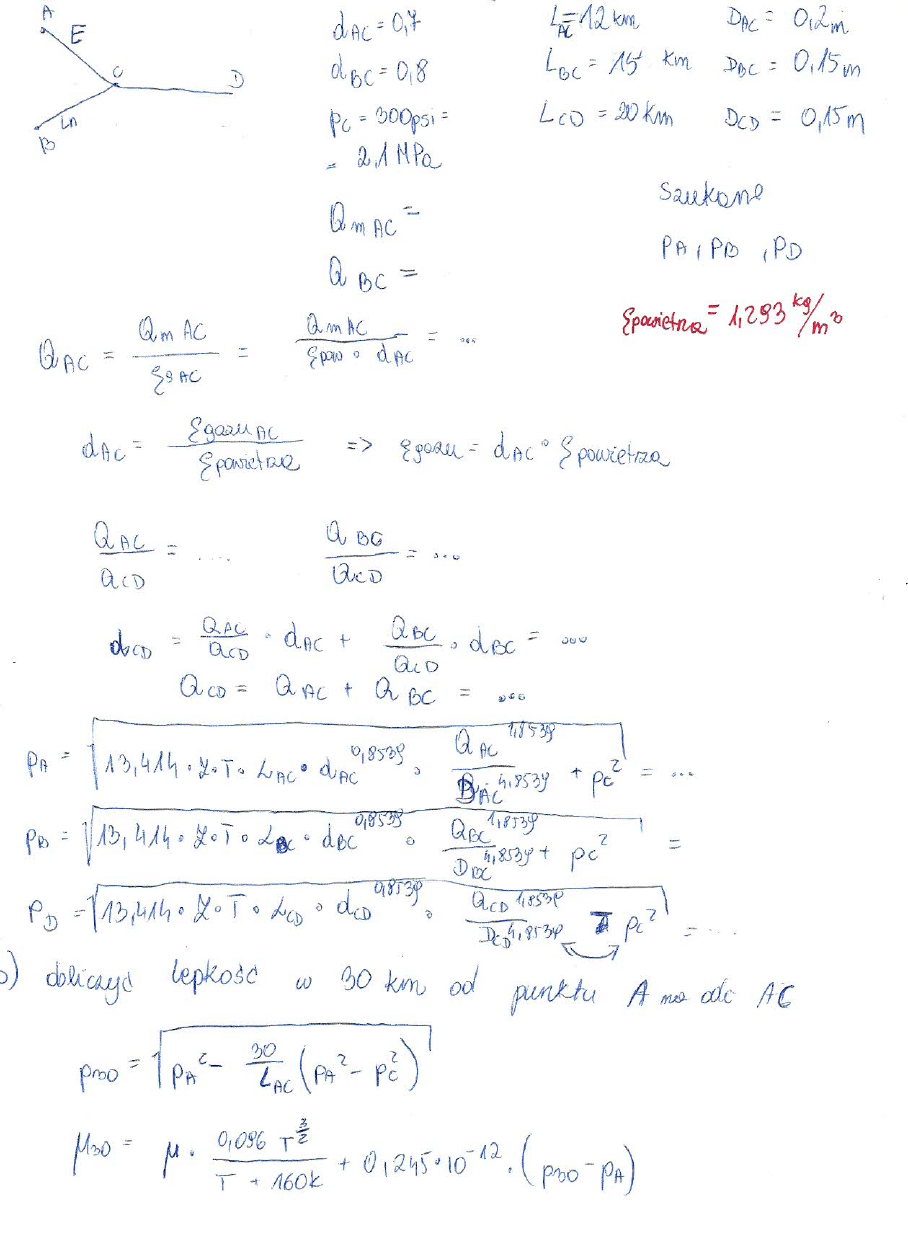 A
E
C
D
B
Ln
d_AC = 0,7
L_AC = 12 km
D_AC = 0,2m
d_BC = 0,8
L_BC = 15 km
D_BC = 0,15m
p_C = 300psi =
= 2,1 MPa
L_CD = 20 km
D_CD = 0,15m
Q_mAC =
Q_BC =
Szukane
p_A, p_B, p_D
ρ_powietrza = 1,293 kg/m³
Q_AC = Q_mAC / ρ_gAC = Q_mAC / (ρ_pow · d_AC) = ...
d_AC = ρ_gazu AC / ρ_powietrza => ρ_gazu = d_AC · ρ_powietrza
Q_AC / Q_CD = .... Q_BC / Q_CD = ...
d_CD = Q_AC / Q_CD · d_AC + Q_BC / Q_CD · d_BC = ...
Q_CD = Q_AC + Q_BC = ...
p_A = √(13,414 · Z · T · L_AC · d_AC^0,8539 · Q_AC^1,8539 / D_AC^4,8539 + p_C²) = ...
p_B = √(13,414 · Z · T · L_BC · d_BC^0,8539 · Q_BC^1,8539 / D_BC^4,8539 + p_C²) =
p_D = √(13,414 · Z · T · L_CD · d_CD^0,8539 · Q_CD^1,8539 / D_CD^4,8539 p_C²) = ....
b) obliczyć lepkość w 30 km od punktu A na odc AC
p_30 = √(p_A² - 30 / L_AC (p_A² - p_C²))
μ_30 = μ · 0,096 T^(3/2) / (T + 160k) + 0,245 · 10^-12 · (p_30 - p_A)